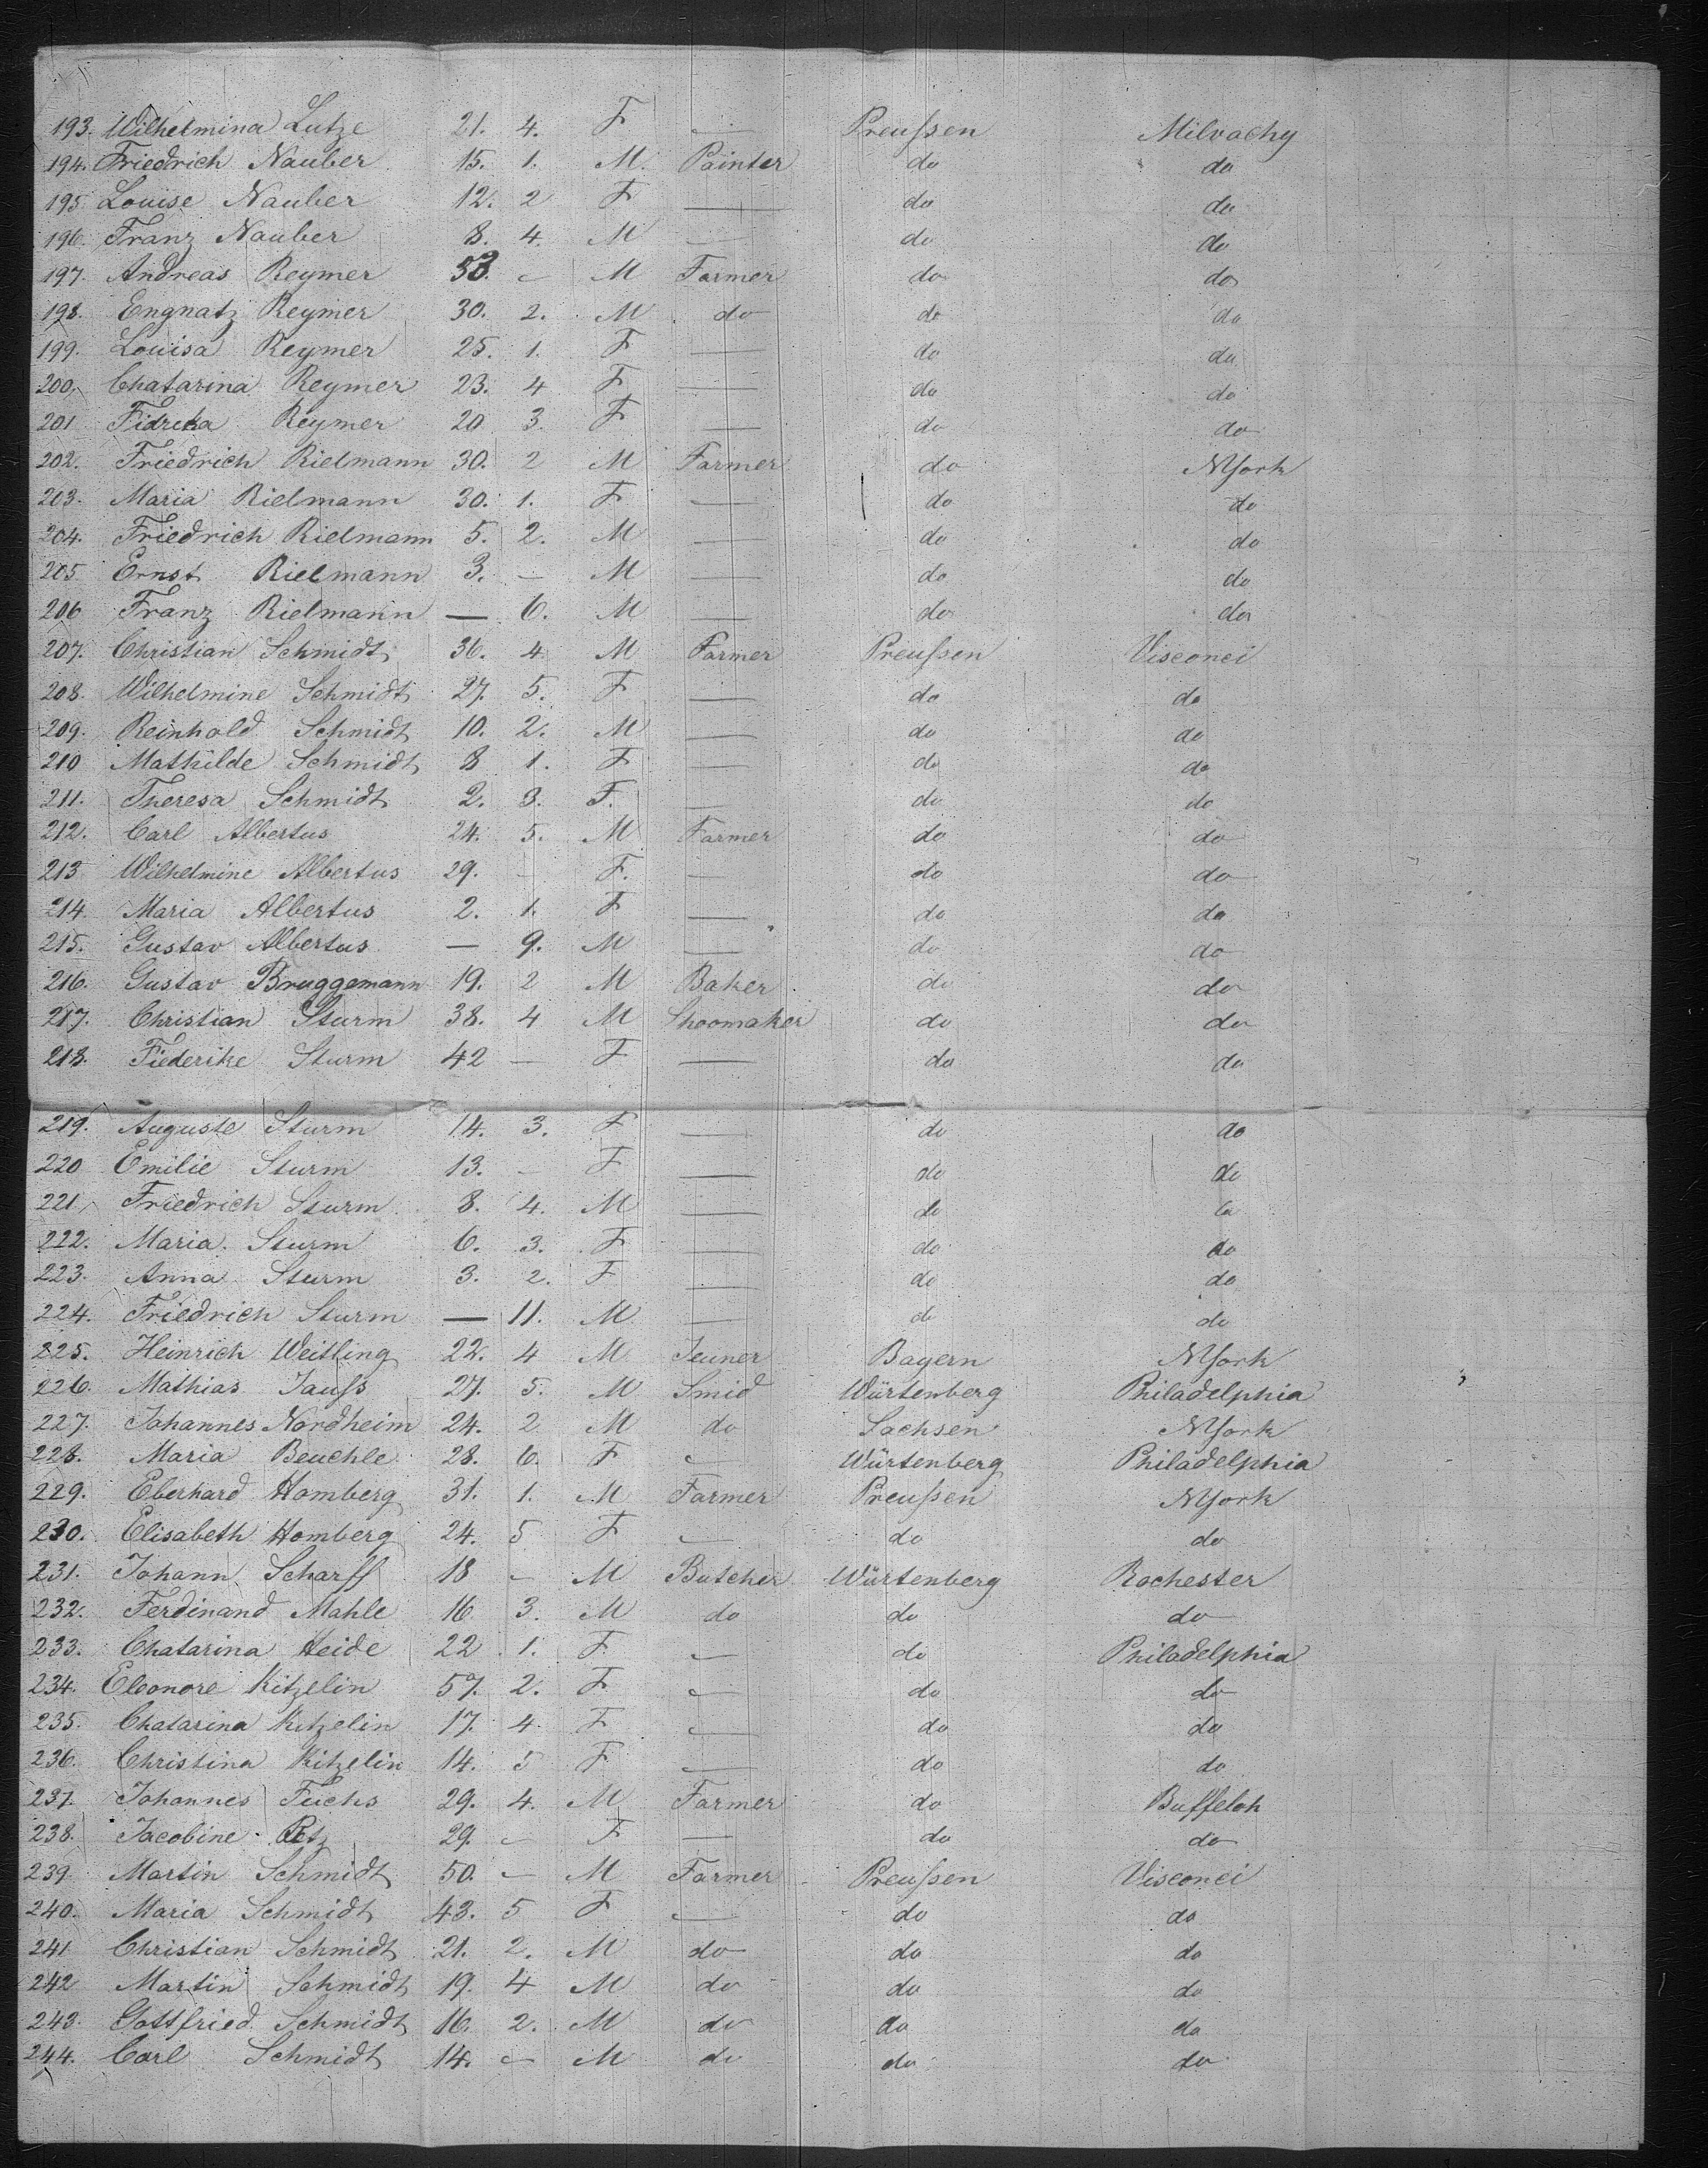 193. Wilhelmina Lutze 21. 4. F — Preußen Milvachy
194. Friedrich Nauber 15. 1. M. Painter do do
195 Louise Nauber 12. 2 F — do do
196. Franz Nauber 8. 4. M — do do
197. Andreas Reymer 53. – M Farmer do do
198. Engnatz Reymer 30. 2. M do do do
199. Louisa Reymer 25. 1. F — do do
200. Chatarina Reymer 23. 4 F — do do
201 Fidreka Reymer 20 3 F — do do
202. Friedrich Rielmann 30. 2 M Farmer do NYork
203. Maria Rielmann 30. 1. F — do do
204. Friedrich Rielmann 5. 2. M — do do
205 Ernst Rielmann 3. – M — do do
206 Franz Rielmann — 6. M — do do
207. Christian Schmidt 36. 4 M Farmer Preußen Visconci
208. Wilhelmine Schmidt 27. 5. F — do do
209. Reinhold Schmidt 10. 2. M — do do
210 Mathilde Schmidt 8 1. F — do do
211. Theresa Schmidt 2. 3. F. — do do
212. Carl Albertus 24. 5. M Farmer do do
213 Wilhelmine Albertus 29. – F. — do do
214. Maria Albertus 2. 1. F — do do
215. Gustav Albertus — 9. M — do do
216. Gustav Bruggemann 19. 2 M Baker do do
217. Christian Sturm 38. 4 M Shoomaker do do
218. Fiederike Sturm 42 – F — do do
219. Auguste Sturm 14. 3. F — do do
220 Emilie Sturm 13. – F — do do
221. Friedrich Sturm 8. 4. M — do do
222. Maria Sturm 6. 3. F — do do
223. Anna Sturm 3. 2. F — do do
224. Friedrich Sturm — 11. M — do do
225. Heinrich Weitling 22. 4 M Jeuner Bayern NYork
226. Mathias Jauß 27. 5. M Smid Würtenberg Philadelphia
227. Johannes Nordheim 24. 2 M do Sachsen NYork
228. Maria Beuchle 28. 6. F – Würtenberg Philadelphia
229. Eberhard Homberg 31. 1. M Farmer Preußen NYork
230. Elisabeth Homberg 24. 5 F – do do
231. Johann Scharff 18 – M Butcher Würtenberg Rochester
232. Ferdinand Mahle 16 3. M do do do
233. Chatarina Heide 22 1. F – do Philadelphia
234. Eleonore Kitzelin 57. 2. F – do do
235. Chatarina Kitzelin 17. 4. F – do do
236. Christina Kitzelin 14. 5 F – do do
237. Johannes Fuchs 29. 4. M Farmer do Buffeloh
238. Jacobine Retz 29. – F — do do
239. Martin Schmidt 50. – M Farmer Preußen Visconci
240. Maria Schmidt 43. 5 F — do do
241 Christian Schmidt 21. 2. M do do do
242 Martin Schmidt 19. 4 M do do do
243. Gottfried Schmidt 16. 2. M do do do
244. Carl Schmidt 14. – M do do do